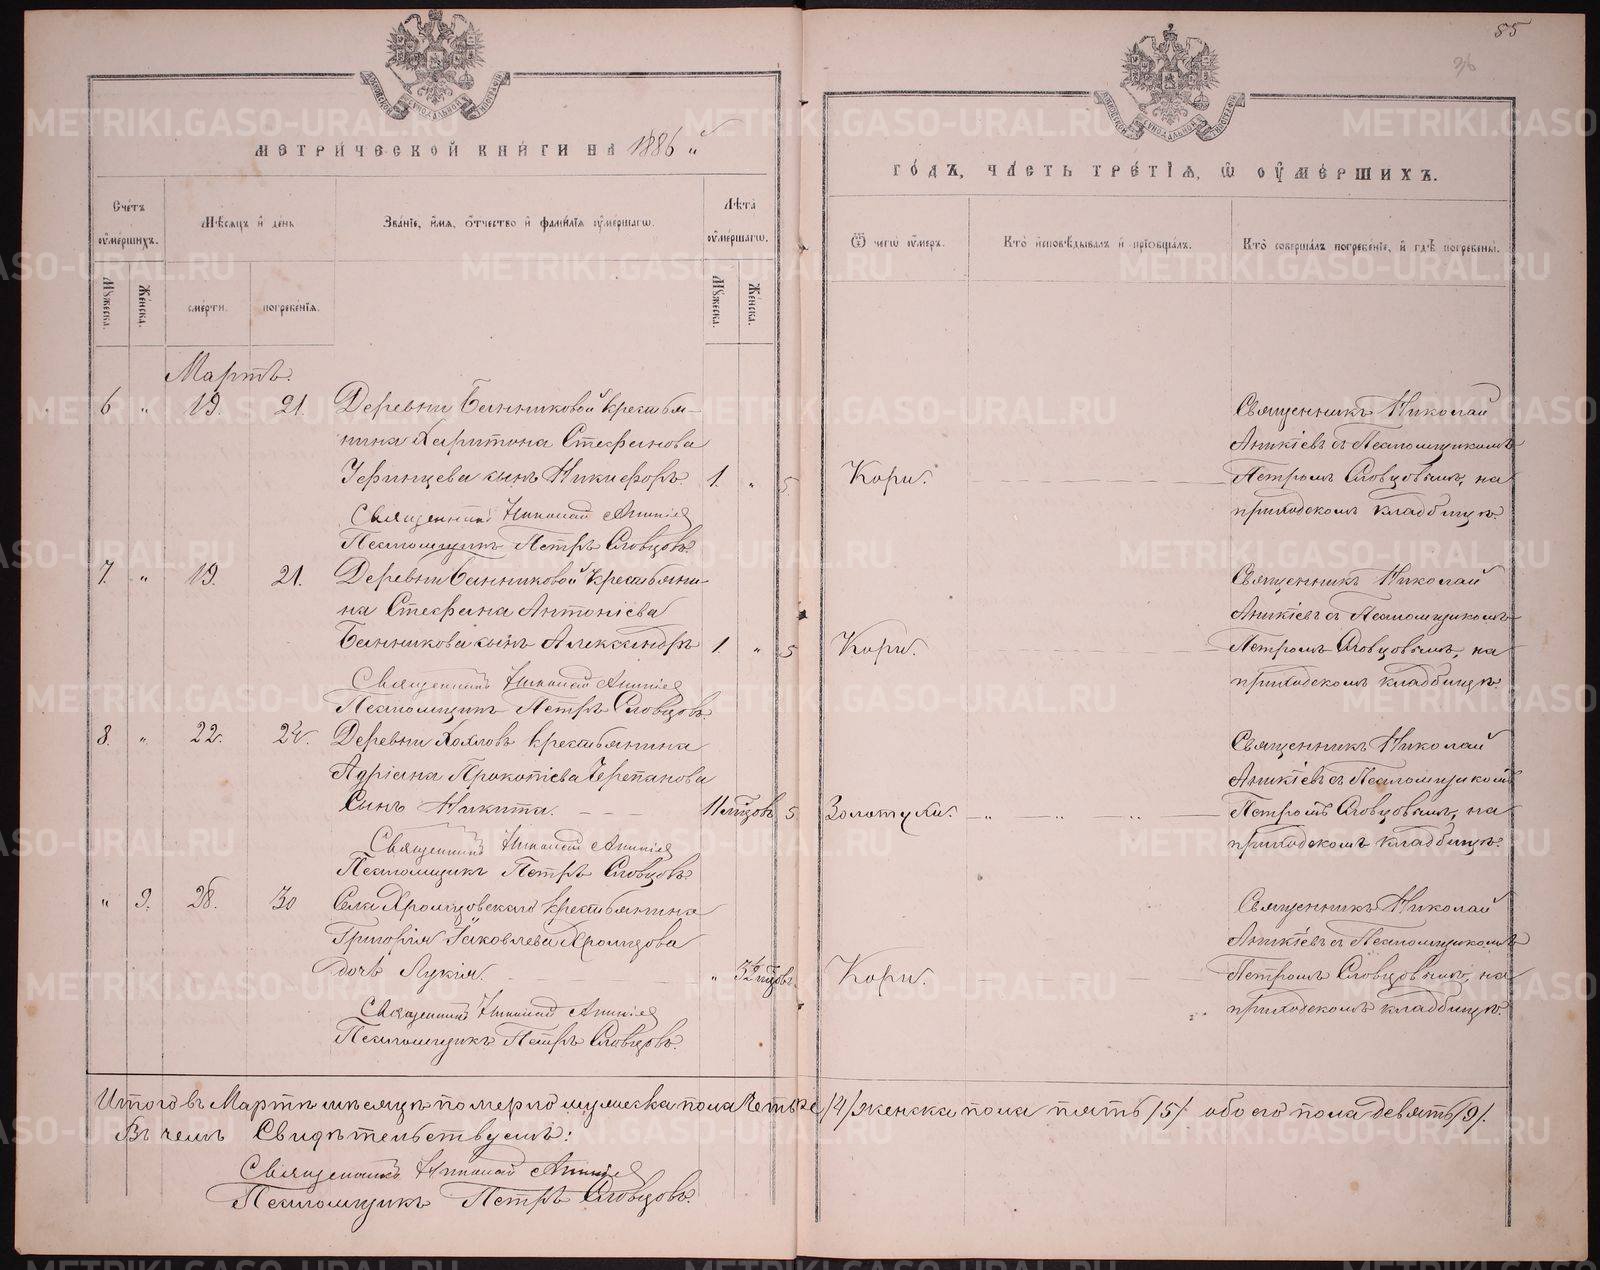 85
36
МЕТРИ́ЧЕСКОЙ КНИ́ГИ НА 1886 й
ГО́ДЪ, ЧА́СТЬ ТРЕ́ТІѦ, Ѿ ОУ҆МЕ́РШИХЪ.
Счетъ оумершихъ.
Мѣсяцъ и день
Званіе, имя, отчество и фамилія оумершагѡ.
Лѣта оумершагѡ.
Мꙋжеска.
Женска.
смерти.
погребенія.
Мꙋжеска.
Женска.
Ѿ чегѡ оумеръ.
Кто исповѣдывалъ и пріобщалъ.
Кто совершалъ погребеніе, и гдѣ погребены.
Мартъ.
6 „ 19. 21. Деревни Банниковой крестья-
нина Харитона Стефанова
сынъ Никифоръ 1. „ 5
Священникъ Николай Аникіев
Псаломщикъ Петръ Словцовъ.
Кори.
Священникъ Николай
Аникіевъ съ Псаломщикомъ
Петромъ Словцовымъ, на
приходскомъ кладбищѣ.
7. „ 19. 21. Деревни Банниковой крестьяни-
на Стефана Антоніева
Банникова сынъ Александръ 1 „ 5
Священникъ Николай Аникіев
Псаломщикъ Петръ Словцовъ.
Кори.
Священникъ Николай
Аникіевъ съ Псаломщикомъ
Петромъ Словцовымъ, на
приходскомъ кладбищѣ.
8. „ 22. 24. Деревни крестьянина
Адріана Прокопіева Черепанова
Сынъ Никита. 11 мѣсцовъ 5
Священникъ Николай Аникіев
Псаломщикъ Петръ Словцовъ.
Золотухи.
Священникъ Николай
Аникіевъ съ Псаломщикомъ
Петромъ Словцовымъ, на
приходскомъ кладбищѣ.
„ 9. 28. 30 Села Хромцовскаго крестьянина
Григорія Іаковлева Хромцова
дочь Лукія. „
Священникъ Николай Аникіев
Псаломщикъ Петръ Словцовъ.
Кори.
Священникъ Николай
Аникіевъ съ Псаломщикомъ
Петромъ Словцовымъ, на
приходскомъ кладбищѣ.
Итого въ Мартѣ мѣсяцѣ померло мужеска пола четыре /4/ женска пола пять /5/ обоего пола девять /9/.
Въ чемъ Свидѣтельствуемъ:
Священникъ Николай Аникіев
Псаломщикъ Петръ Словцовъ.
METRIKI.GASO-URAL.RU